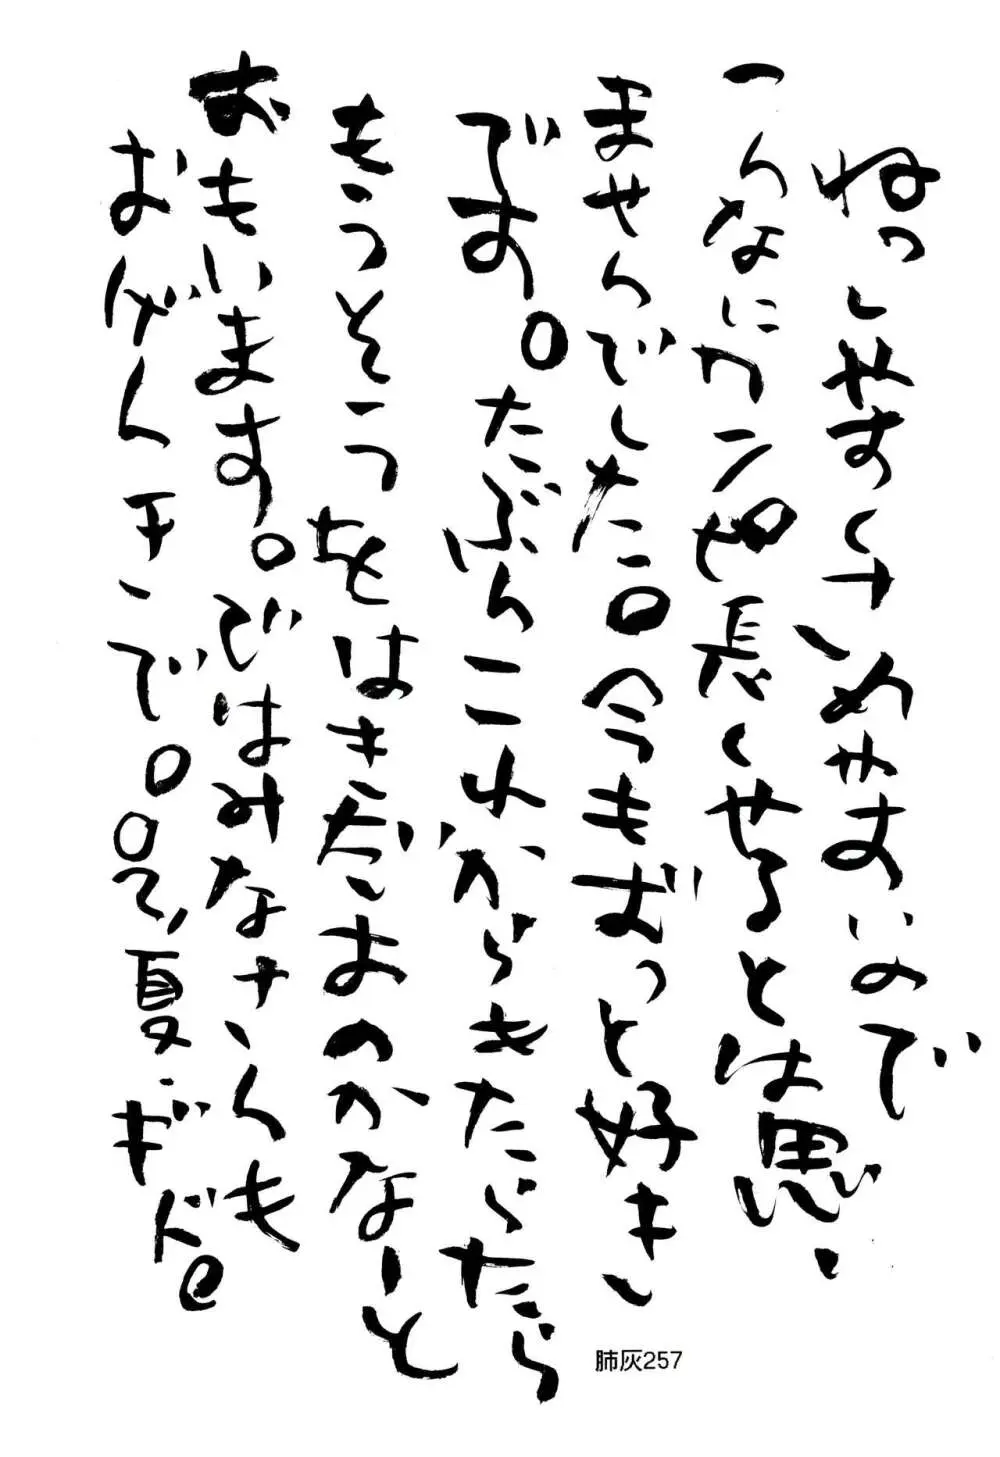 ねっしやすくさめやすいので
こんなにワンピ長くやるとは思い
ませんでした。今もずっと好き
です。たぶんこれからもたらたら
もうそうをはきだすのかなーと
おもいます。ではみなさんも
おげんきで。02,夏.ギド。
肺灰257